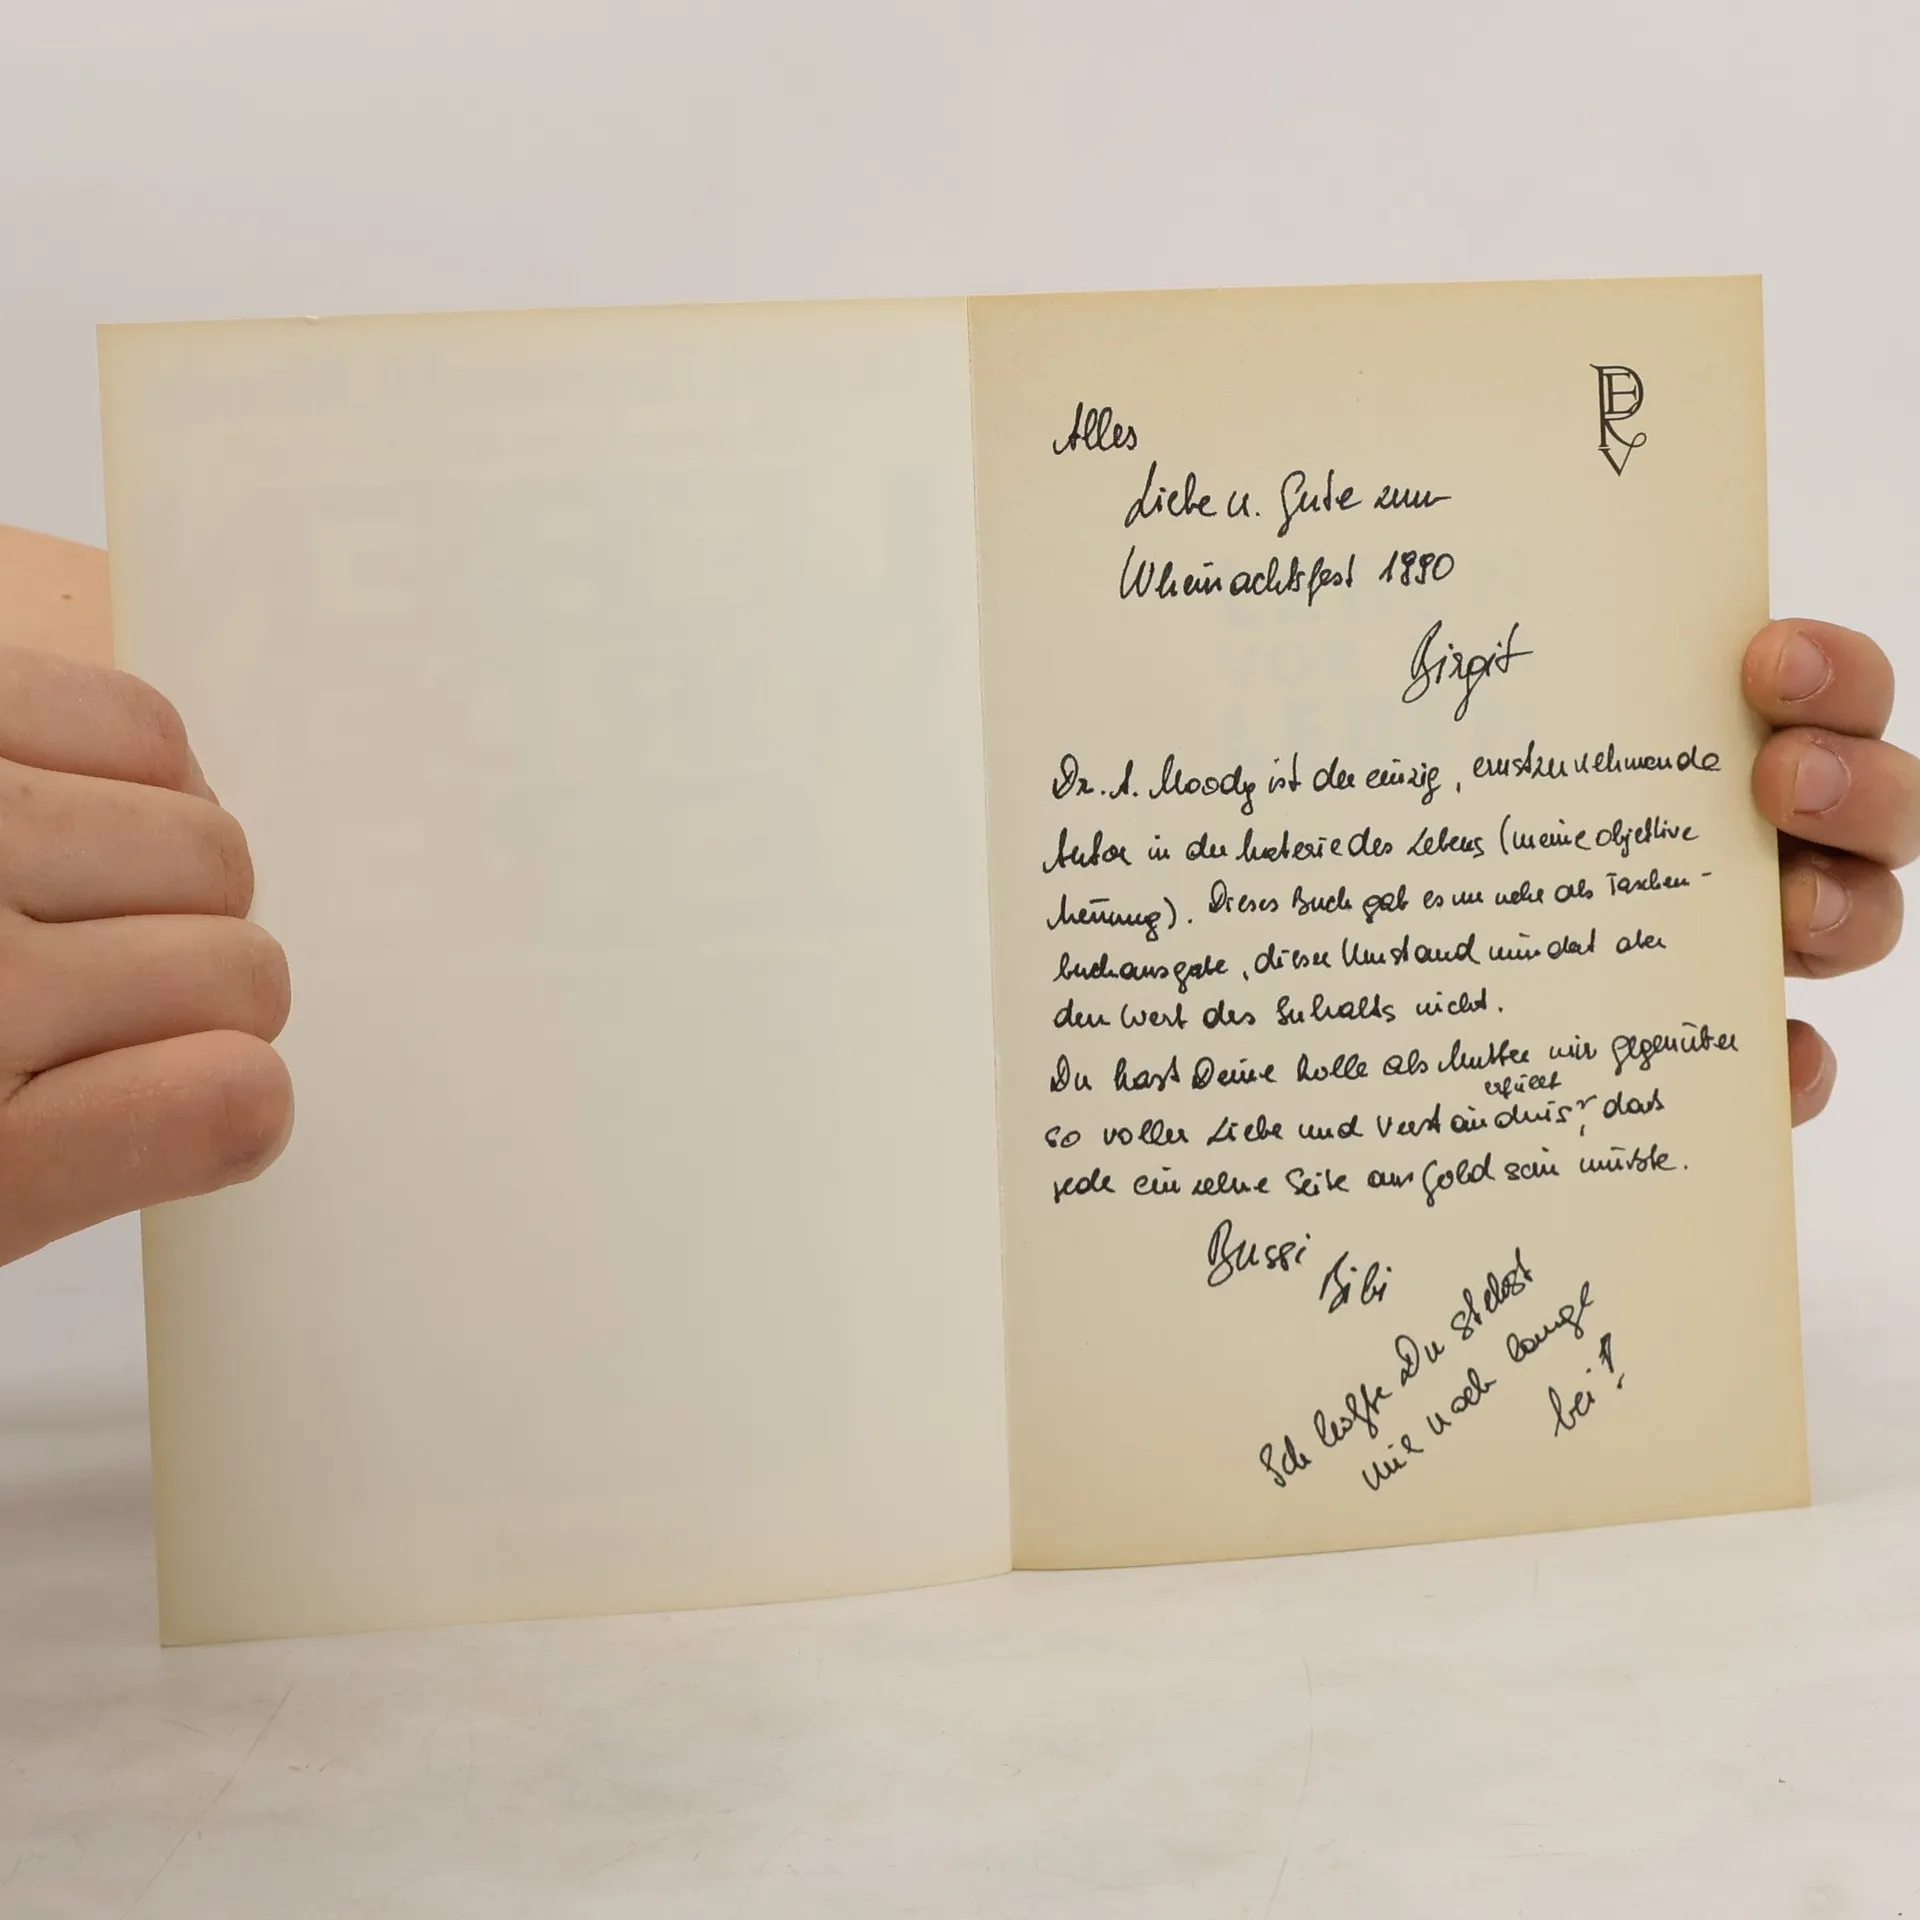 ERV
Alles
Liebe u. Gute zum
Wheinachtsfest 1990
Birgit
Dr. A. Moody ist der einzig, ernstzunehmende
Autor in der Materie des Lebens (meine objektive
Meinung). Dieses Buch gab es nur mehr als Taschen-
buchausgabe, dieser Umstand mindert aber
den Wert des Inhalts nicht.
Du hast Deine Rolle als Mutter mir gegenüber
erfüllt
so voller Liebe und Verständnis, das
jede einzelne Seite aus Gold sein müsste.
Bussi
Bibi
Ich hoffe Du stehst
mir noch lange
bei!